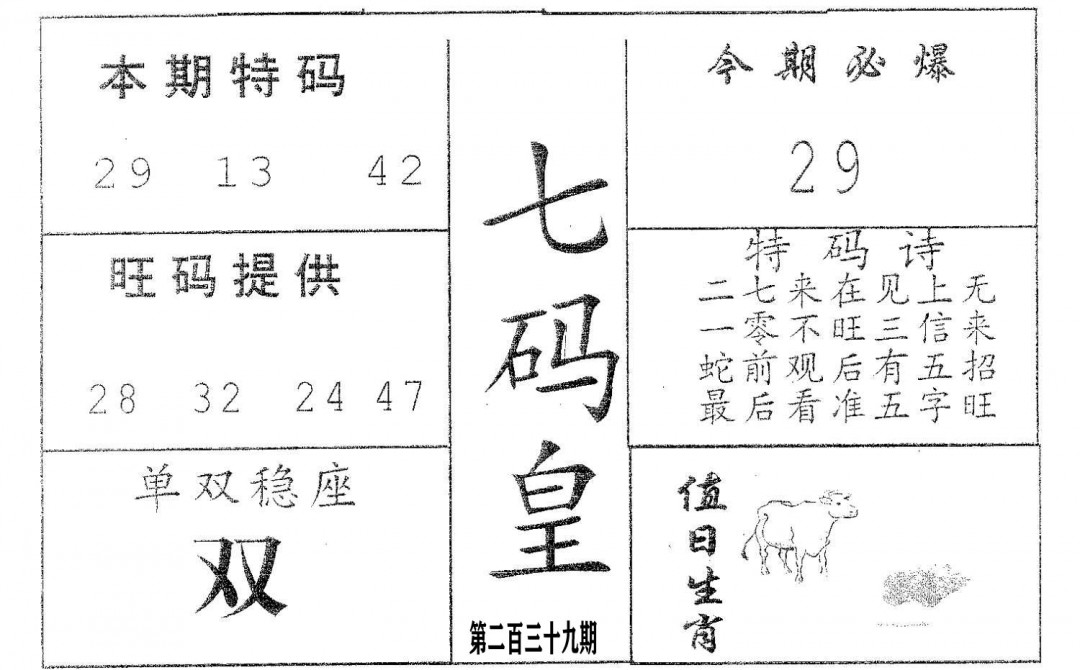 本期特码
29 13 42
旺码提供
28 32 24 47
单双稳座
双
七码皇
第二百三十九期
今期必爆
29
特码诗
二七来在见上无
一零不旺三信来
蛇前观后有五招
最后看准五字旺
值日生肖